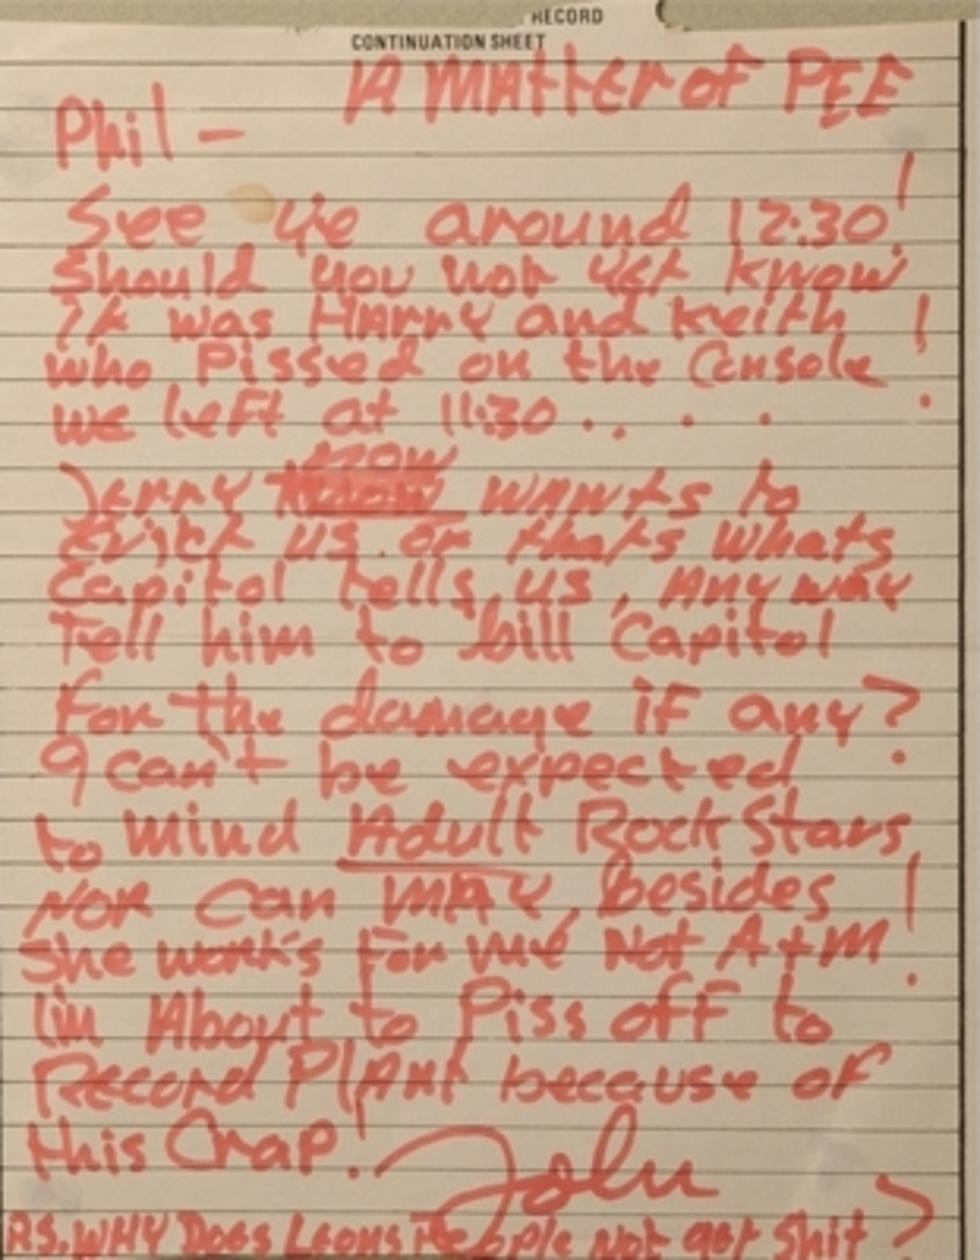 RECORD
CONTINUATION SHEET
A Matter of PEE
Phil —
See Ye around 12:30!
Should you not yet know
it was Harry and Keith
who Pissed on the Console!
we left at 11:30 . . . . .
Jerry now wants to
Evict us. or thats whats
Capitol tells, us. Anyway
Tell him to bill Capitol
For the damage if any?
I can't be expected
to mind Adult Rock Stars
Nor can May, Besides
She works For me Not A+M!
I'm About to Piss off to
Record Plant because of
this Crap!
John
P.S. WHY Does Leons People Not get Shit?